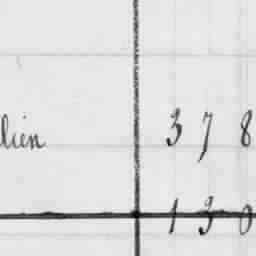 lien 3 7 8
1 9 0